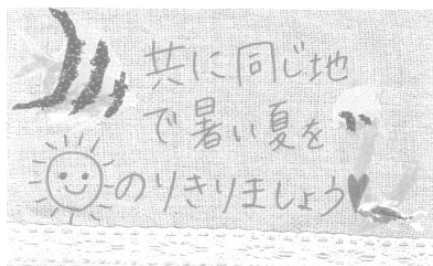 共に同じ地
で暑い夏を
のりきりましょう